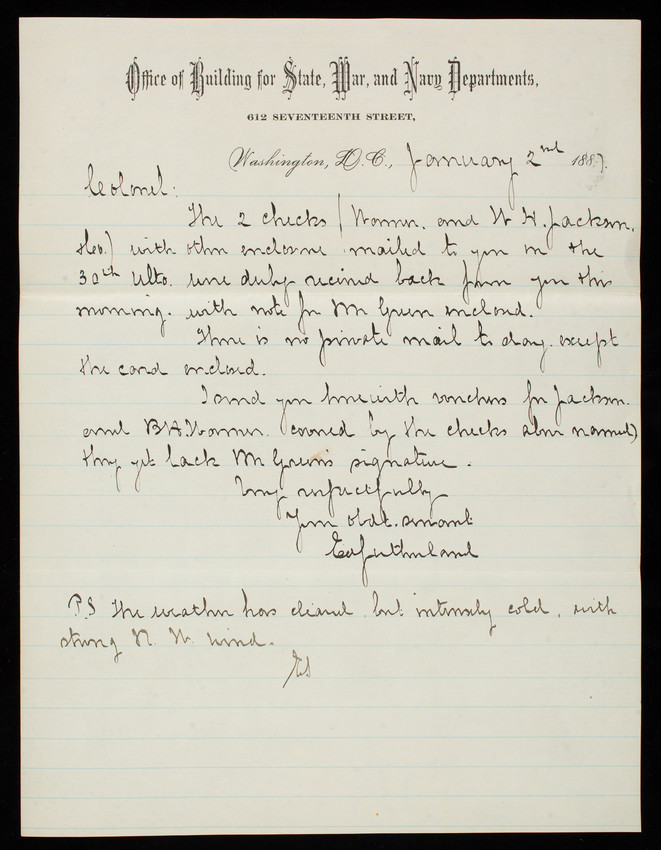 Office of Building for State, War, and Navy Departments,
612 SEVENTEENTH STREET,
Washington, D.C., January 2nd 1887.
Colonel:
The 2 checks ( and W H. Jackson,
) with other enclosure mailed to you on the
30th Ulto. were duly received back from you this
morning. with note for Mr Green enclosed.
There is no private mail to day. except
the card enclosed.
I send you herewith vouchers for Jackson.
and (covered by the checks above named)
they yet lack Mr Green's signature.
Very respectfully
Your obdt. servant
Ed Sutherland
P.S The weather has cleared but intensely cold, with
strong N. W. wind.
ES